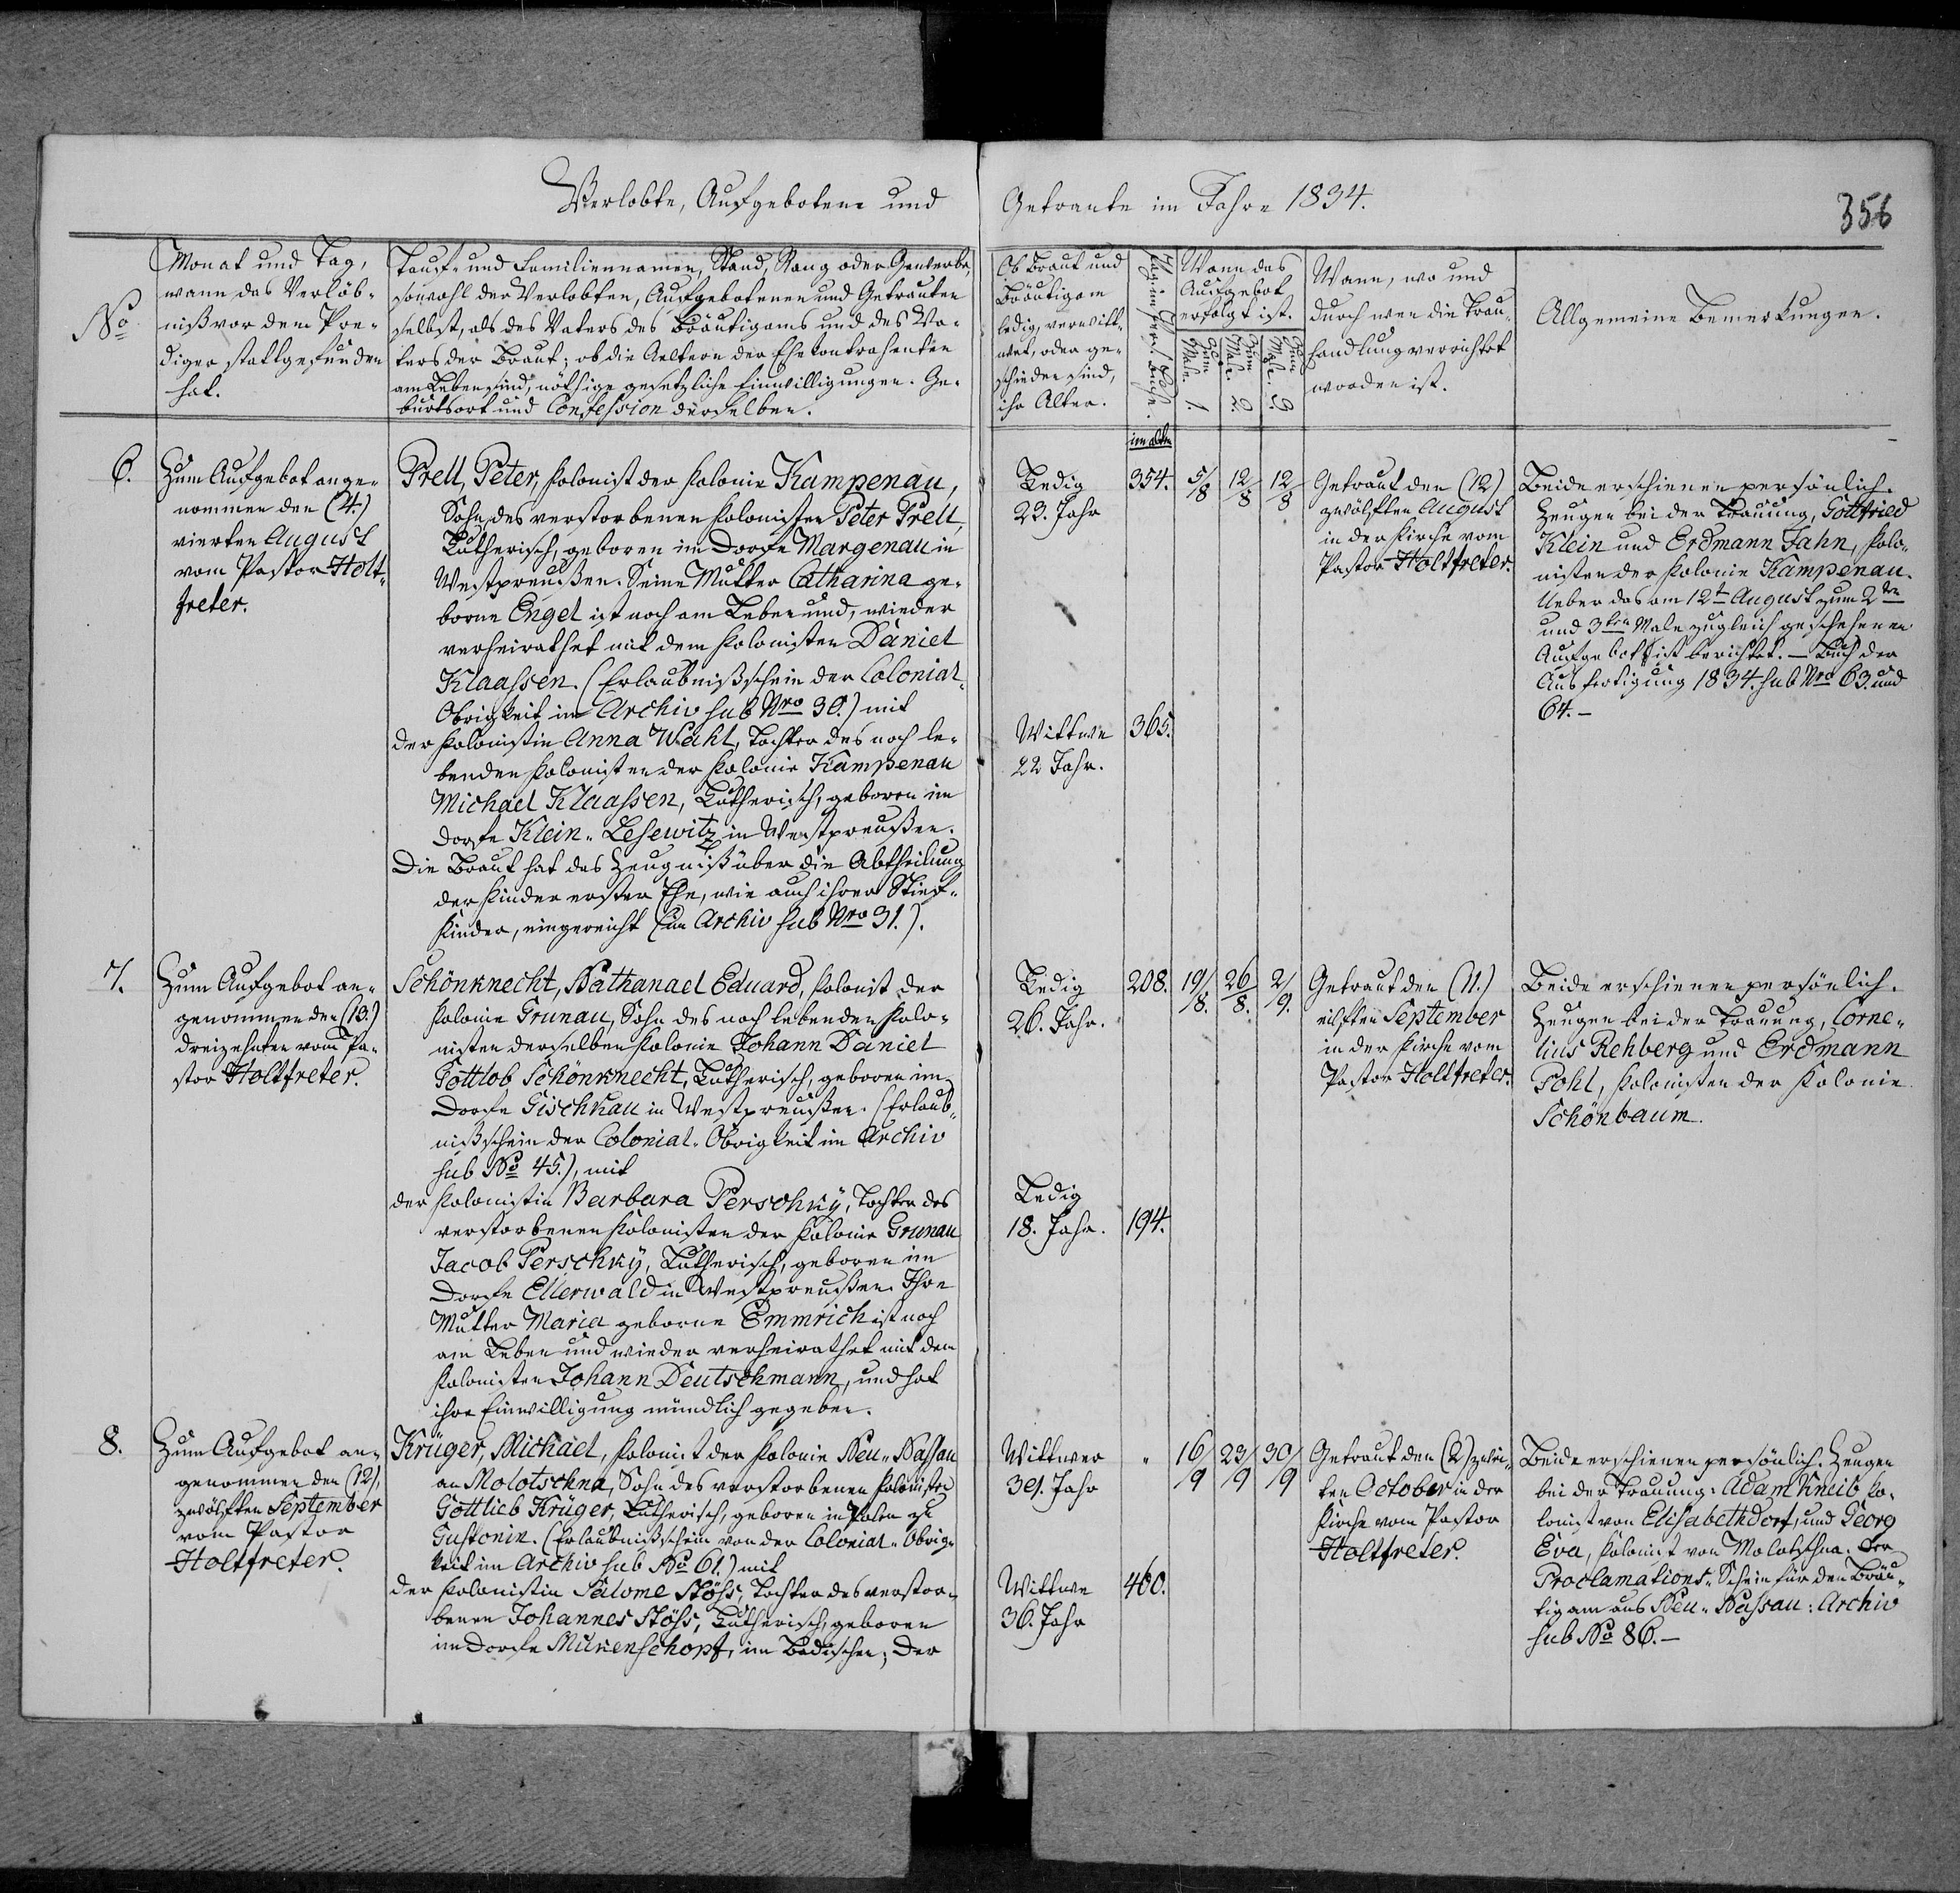 Verlobte, Aufgebotene und
Getraute im Jahre 1834.
356
No
Monat und Tag,
wann das Verlöb-
niß vor dem Pre-
diger stattgefunden
hat.
Tauf- und Familiennamen, Stand, Rang oder Gewerbe,
sowohl der Verlobten, Aufgebotenen und Getrauten
selbst, als des Vaters des Bräutigams und des Va-
ters der Braut; ob die Aeltern der Ehekontrahenten
am Leben sind, nöthige gesetzliche Einwilligungen. Ge-
burtsort und Confession derselben.
Ob Braut und
Bräutigam
ledig, verwitt-
wet, oder ge-
schieden sind,
ihr Alter.
Wann das
Aufgebot
erfolgt ist.
Zum 1. Male.
Zum 2. Male.
Zum 3. Male.
Wann, wo und
durch wen die Trau-
handlung verrichtet
worden ist.
Allgemeine Bemerkungen.
6.
Zum Aufgebot ange-
nommen den (4.)
vierten August
vom Pastor Holt-
freter.
Prell, Peter, Kolonist der Kolonie Kampenau,
Sohn des verstorbenen Kolonisten Peter Prell,
Lutherisch, geboren im Dorfe Margenau in
Westpreußen. Seine Mutter Catharina ge-
borne Engel ist noch am Leben und, wieder
verheirathet mit dem Kolonisten Daniel
Klaassen. (Erlaubnißschein der Colonial-
Obrigkeit im Archiv sub Nro 30.) mit
der Kolonistin Anna Wahl, Tochter des noch le-
benden Kolonisten der Kolonie Kampenau
Michael Klaassen, Lutherisch, geboren im
Dorfe Klein-Lesewitz in Westpreußen.
Die Braut hat das Zeugniß über die Abtheilung
der Kinder erster Ehe, wie auch ihrer Stief-
kinder, eingereicht (im Archiv sub Nro 31.).
Ledig
23. Jahr
im alten
354.
5/8
12/8
12/8
Wittwe
22 Jahr.
365.
Getraut den (12)
zwölften August
in der Kirche vom
Pastor Holtfreter.
Beide erschienen persönlich.
Zeugen bei der Trauung, Gottfried
Klein und Erdmann Jahn, Kolo-
nisten der Kolonie Kampenau.
Ueber das am 12t August zum 2ten
und 3ten Male zugleich geschehenen
Aufgebot ist berichtet. — Buch der
Ausfertigung 1834. sub Nro 63. und
64. —
7.
Zum Aufgebot an-
genommen den (13.)
dreizehnten vom Pa-
stor Holtfreter.
Schönknecht, Nathanael Eduard, Kolonist der
Kolonie Grunau, Sohn des noch lebenden Kolo-
nisten derselben Kolonie Johann Daniel
Gottlob Schönknecht, Lutherisch, geboren im
Dorfe Gischkau in Westpreußen. (Erlaub-
nißschein der Colonial-Obrigkeit im Archiv
sub No 45.), mit
der Kolonistin Barbara Perschky, Tochter des
verstorbenen Kolonisten der Kolonie Grunau
Jacob Perschky, Lutherisch, geboren im
Dorfe Ellerwald in Westpreußen. Ihre
Mutter Maria geborne Emmrich ist noch
am Leben und wieder verheirathet mit dem
Kolonisten Johann Deutschmann, und hat
ihre Einwilligung mündlich gegeben.
Ledig
26. Jahr.
208.
19/8.
26/8.
2/9.
Ledig
18. Jahr.
194.
Getraut den (11.)
eilften September
in der Kirche vom
Pastor Holtfreter.
Beide erschienen persönlich.
Zeugen bei der Trauung, Corne-
lius Rehberg und Erdmann
Pohl, Kolonisten der Kolonie
Schönbaum.
8.
Zum Aufgebot an-
genommen den (12),
zwölften September
vom Pastor
Holtfreter.
Krüger, Michael, Kolonist der Kolonie Neu-Nassau
an Molotschna, Sohn des verstorbenen Kolonisten
Gottlieb Krüger, Lutherisch, geboren in Polen zu
Gustonin. (Erlaubnißschein von der Colonial-Obrig-
keit im Archiv sub No 61.) mit
der Kolonistin Salome Stöß, Tochter des verstor-
benen Johannes Stöß, Lutherisch, geboren
im Dorfe Mükenschopf, im Badischen; der
Wittwer
31. Jahr
"
16/9
23/9
30/9
Wittwe
36. Jahr
460.
Getraut den (2) zwei-
ten October in der
Kirche vom Pastor
Holtfreter.
Beide erschienen persönlich. Zeugen
bei der Trauung: Adam Kneib Ko-
lonist von Elisabethdorf, und Georg
Eva, Kolonist von Molotschna. Der
Proclamations-Schein für den Bräu-
tigam aus Neu-Nassau: Archiv
sub No 86. —